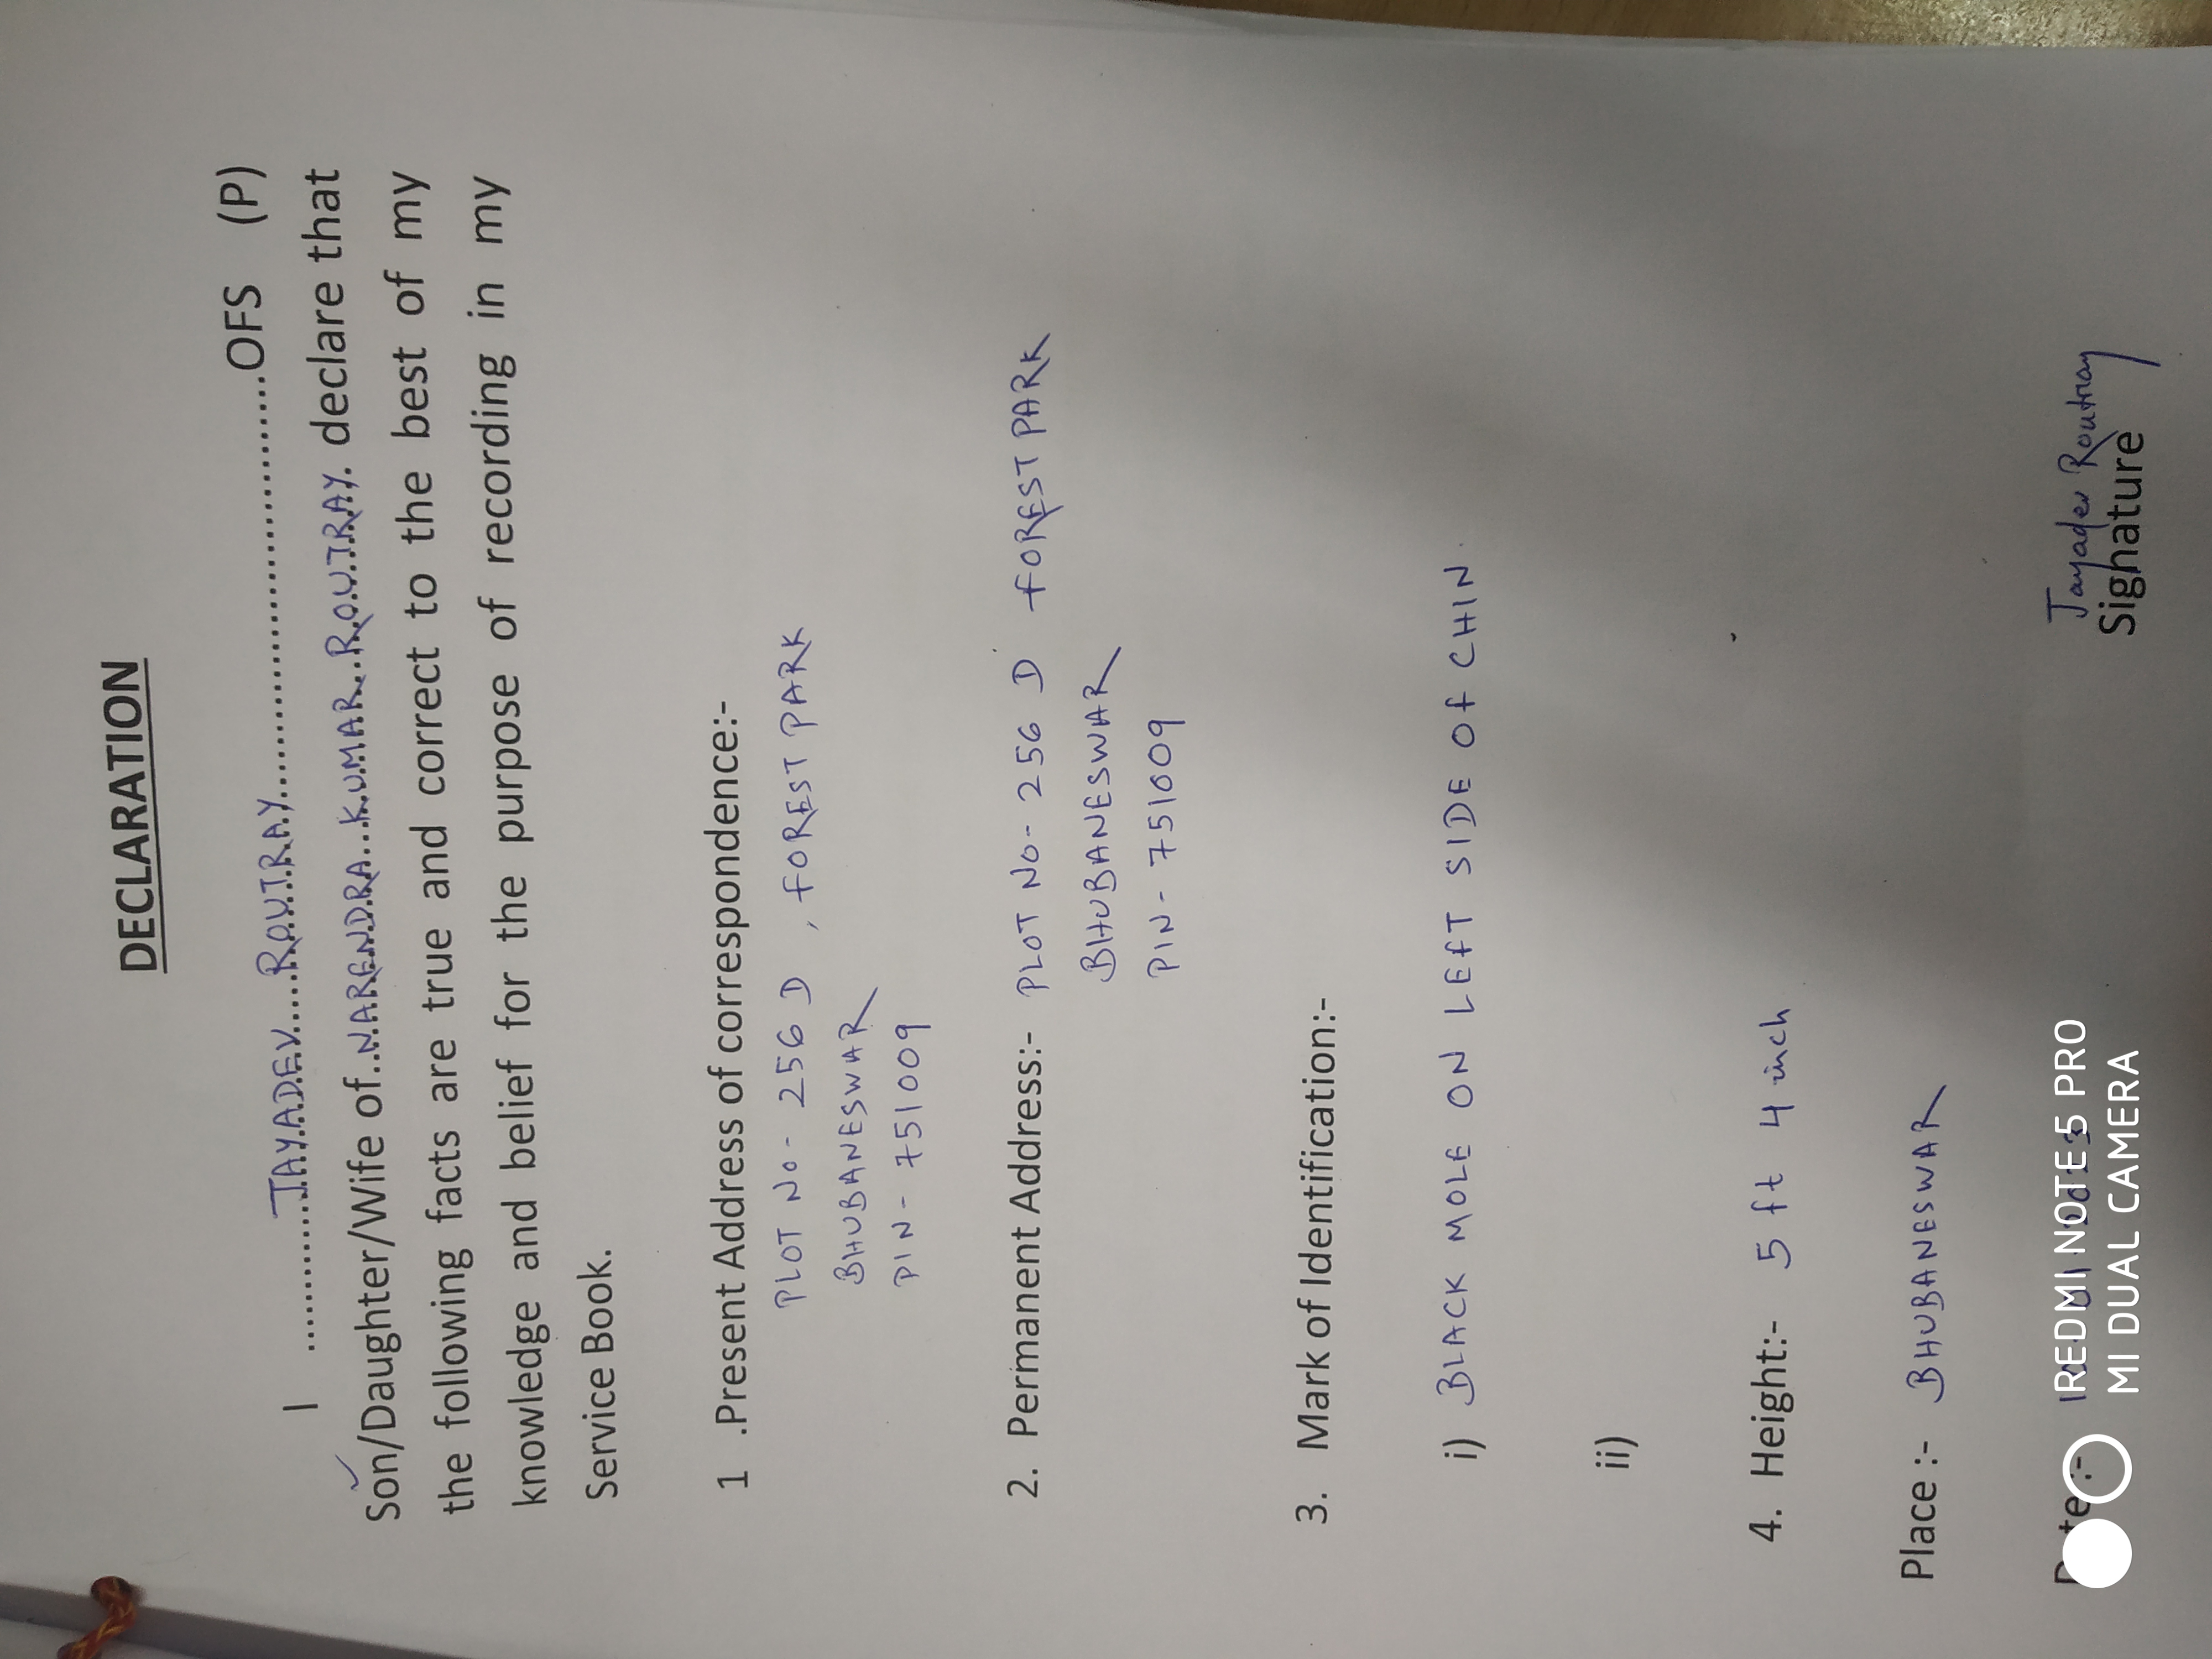 DECLARATION
I ............JAYADEV.....ROUTRAY..............................OFS (P)
Son/Daughter/Wife of..NARENDRA...KUMAR..ROUTRAY. declare that
the following facts are true and correct to the best of my
knowledge and belief for the purpose of recording in my
Service Book.
1 .Present Address of correspondence:-
PLOT No- 256 D , FOREST PARK
BHUBANESWAR
PIN- 751009
2. Permanent Address:- PLOT No- 256 D FOREST PARK
BHUBANESWAR
PIN- 751009
3. Mark of Identification:-
i) BLACK MOLE ON LEFT SIDE OF CHIN.
ii)
4. Height:- 5 ft 4 inch
Place :- BHUBANESWAR
Date :-
REDMI NOTE 5 PRO
MI DUAL CAMERA
Jayadev Routray
Signature